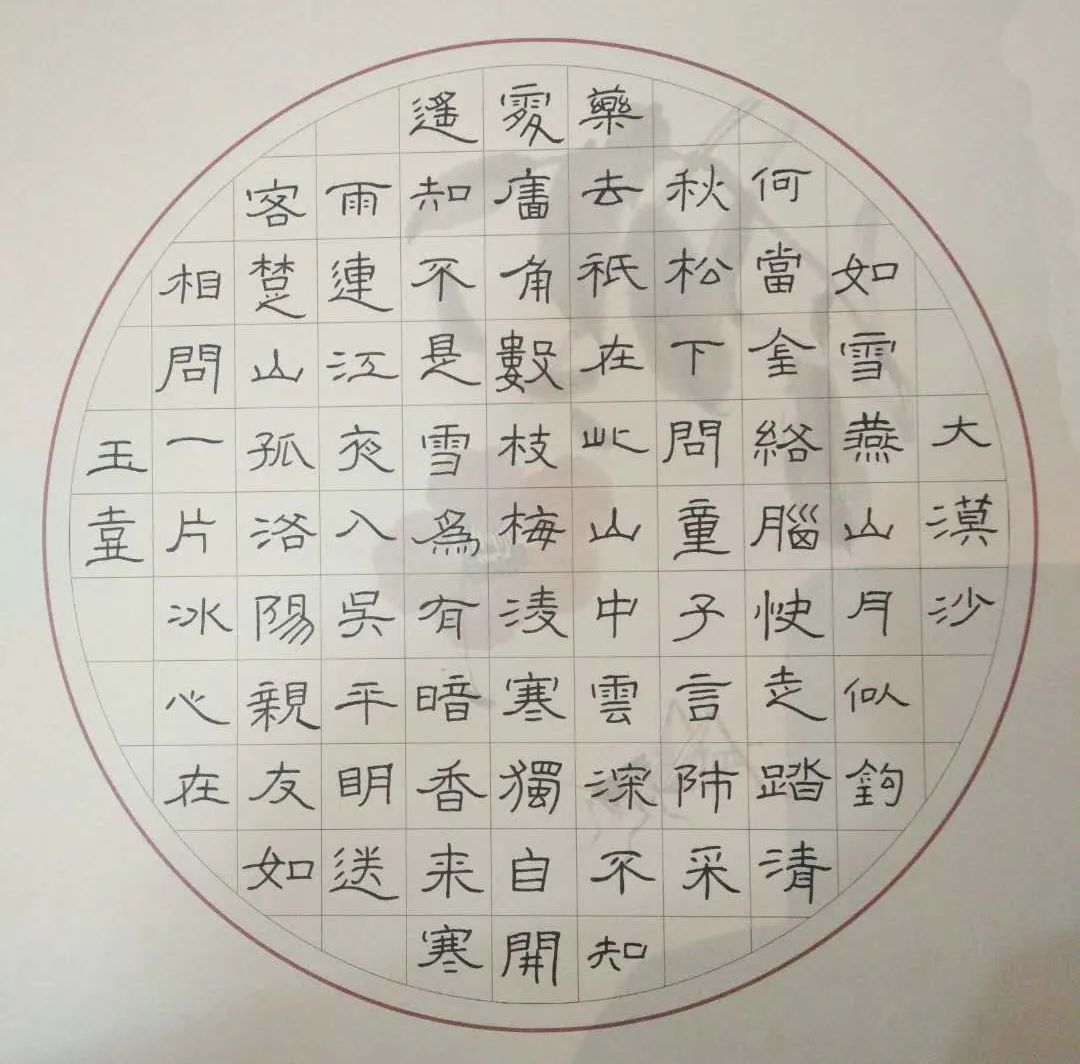 大漠沙
如雪燕山月似鈎
何當金絡腦快走踏清
秋松下問童子言師采
藥去祇在此山中雲深不知
處廧角數枝梅凌寒獨自開
遙知不是雪爲有暗香来寒
雨連江夜入吳平明送
客楚山孤洛陽親友如
相問一片冰心在
玉壺